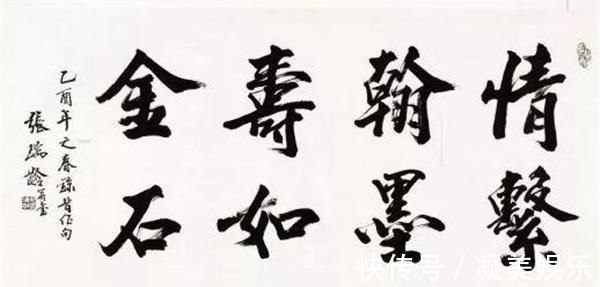 情繫
翰墨
壽如
金石
乙酉年之春
張瑞齡
快传号 / 凝美娱乐